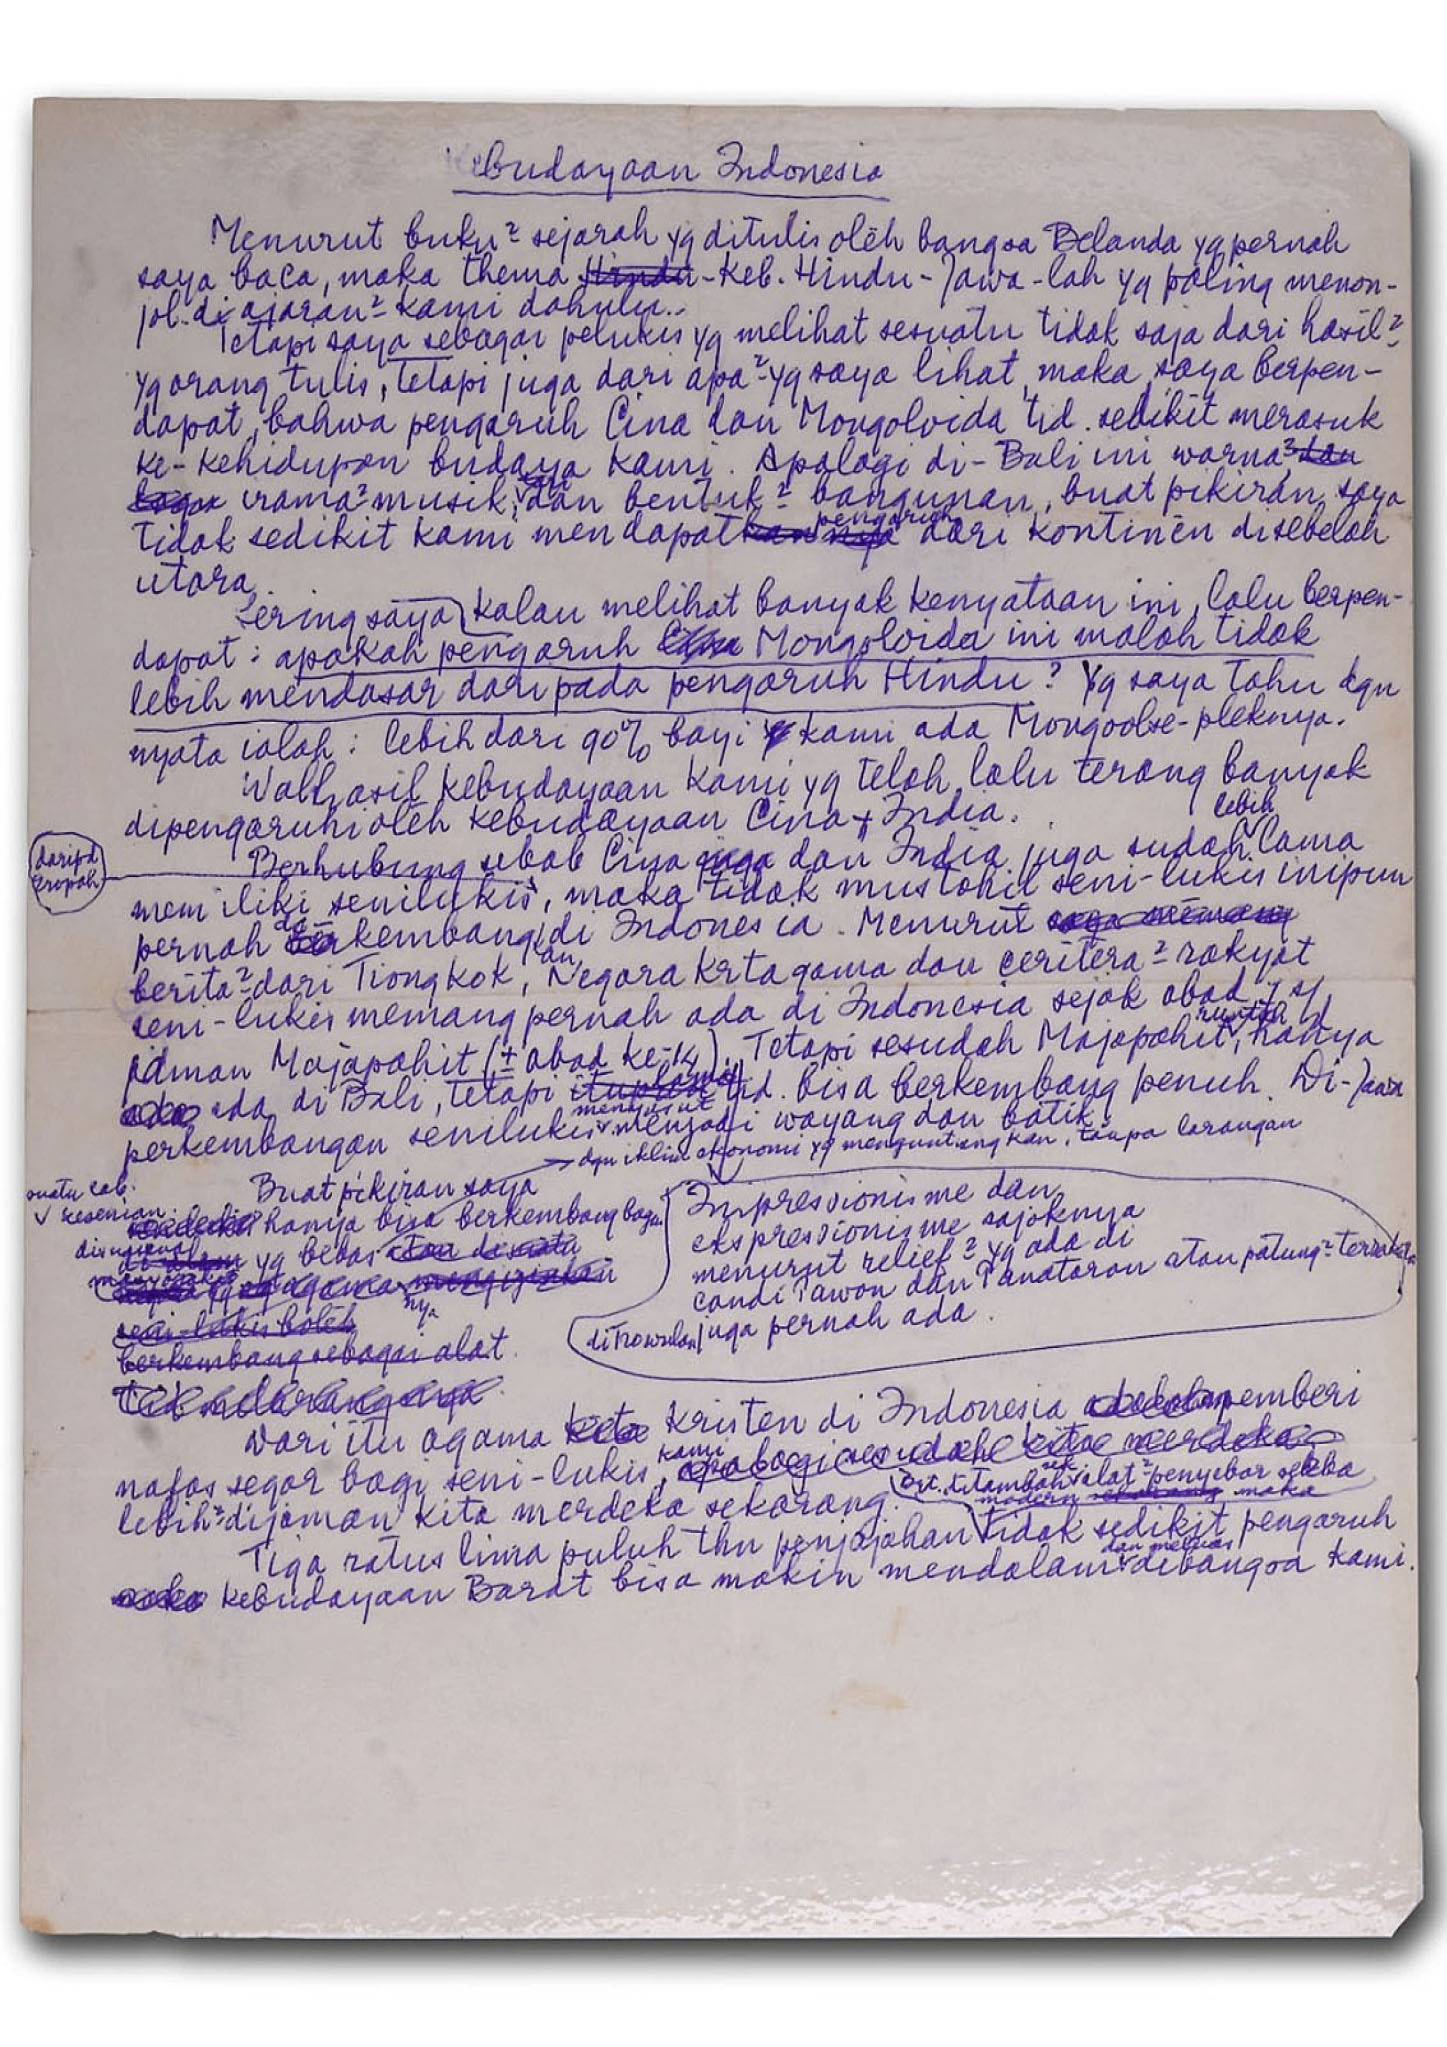 Kebudayaan Indonesia
Menurut buku² sejarah yg ditulis olēh bangsa Belanda yg pernah
saya baca, maka thema Hindu - Keb. Hindu - Jawa - lah yg paling menon-
jol di ajaran² kami dahulu..
Tetapi saya sebagai pelukis yg melihat sesuatu tidak saja dari hasil²
yg orang tulis, tetapi juga dari apa² yg saya lihat, maka saya berpen-
dapat, bahwa pengaruh Cina dan Mongoloida tid. sedikit merasuk
ke-kehidupan budaya kami. Apalagi di-Bali ini warna² dan
lagu irama² musik, dan bentuk² bangunan, buat pikiran saya
tidak sedikit kami mendapatkan nya pengaruh dari kontinēn disebelah
utara.
Sering saya kalau melihat banyak kenyataan ini, lalu berpen-
dapat : apakah pengaruh Cina Mongoloida ini malah tidak
lebih mendasar daripada pengaruh Hindu ? Yg saya tahu dgn
nyata ialah : lebih dari 90% bayi kami ada Mongoolse-pleknya.
Walhasil kebudayaan kami yg telah lalu terang banyak
dipengaruhi olēh kebudayaan Cina + India.
lebih
daripd
eropah
Berhubung sebab Cina juga dan India juga sudah lama
memiliki senilukis, maka tidak mustahil seni-lukis inipun
pernah berkembang di Indonesia. Menurut saya memang
kan
berita² dari Tiongkok, Negara Krtagama dan ceritera² rakyat
seni-lukis memang pernah ada di Indonesia sejak abad 7 s/
runtuh
jaman Majapahit (± abad ke-14). Tetapi sesudah Majapahit, hanya
ada ada di Bali, tetapi itupun tid. bisa berkembang penuh. Di-Jawa
menyusut
perkembangan senilukis menjadi wayang dan batik.
dgn iklim ekonomi yg menguntungkan, tanpa larangan
suatu cab.
kesenian
Buat pikiran saya
hanya bisa berkembang baga
yg bebas atau disuatu
yg agama mengizinkan
nya
seni-lukis bolēh
berkembang sebagai alat.
Impressionisme dan
ekspressionisme sajaknya
menurut relief² yg ada di
candi Pawon dan Panataran atau patung² terrakota
di Trowulan juga pernah ada.
Dari itu agama kita Kristen di Indonesia adalah pemberi
nafas segar bagi seni-lukis kami, apabagi sesudah kita merdeka
lebih² dijaman kita merdeka sekarang.
ditambah alat² penyebar serba
modern sekarang maka
Tiga ratus lima puluh thn penjajahan tidak sedikit pengaruh
dan meluas
maka kebudayaan Barat bisa makin mendalam dibangsa kami.